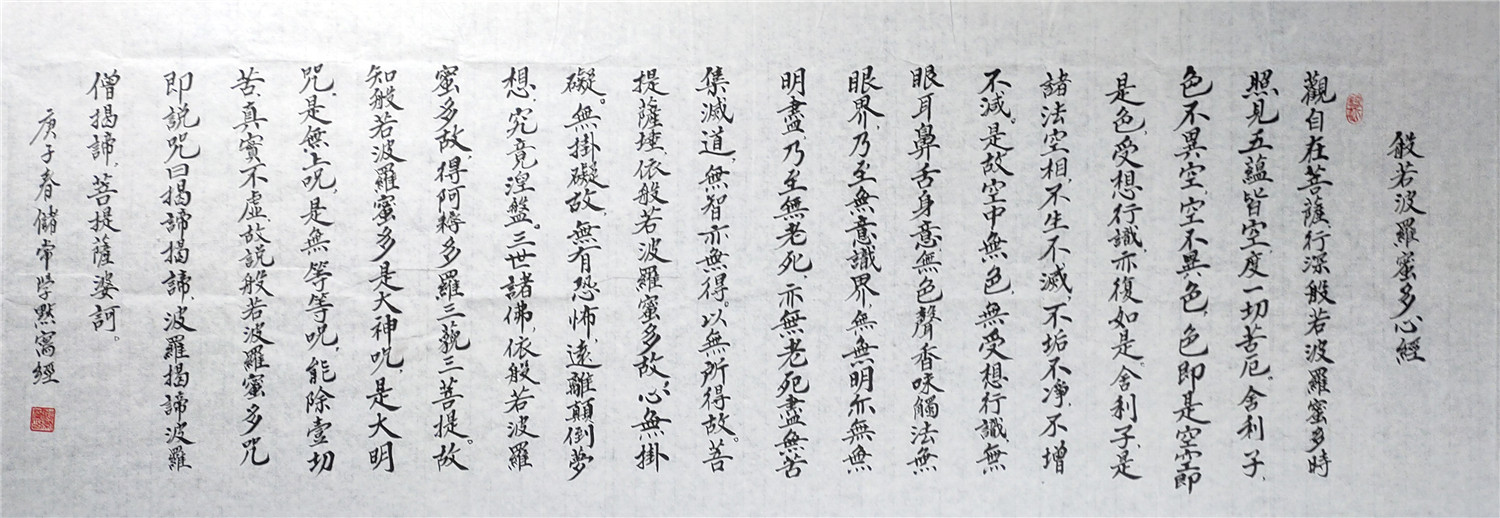 般若波羅蜜多心經
觀自在菩薩行深般若波羅蜜多時
照見五蘊皆空度一切苦厄。舍利子,
色不異空,空不異色,色即是空空即
是色,受想行識亦復如是。舍利子,是
諸法空相,不生不滅,不垢不净,不增
不減。是故空中無色,無受想行識,無
眼耳鼻舌身意無色聲香味觸法無
眼界,乃至無意識界,無無明亦無無
明盡乃至無老死,亦無老死盡無苦
集滅道,無智亦無得。以無所得故。菩
提薩埵,依般若波羅蜜多故,心無掛
礙。無掛礙故,無有恐怖,遠離顛倒夢
想,究竟涅盤。三世諸佛,依般若波羅
蜜多故,得阿耨多羅三藐三菩提。故
知般若波羅蜜多是大神咒,是大明
咒,是無上咒,是無等等咒,能除壹切
苦,真實不虛,故説般若波羅蜜多咒
即説咒曰揭諦揭諦,波羅揭諦波羅
僧揭諦,菩提薩婆訶。
庚子春儲常學黙寫經